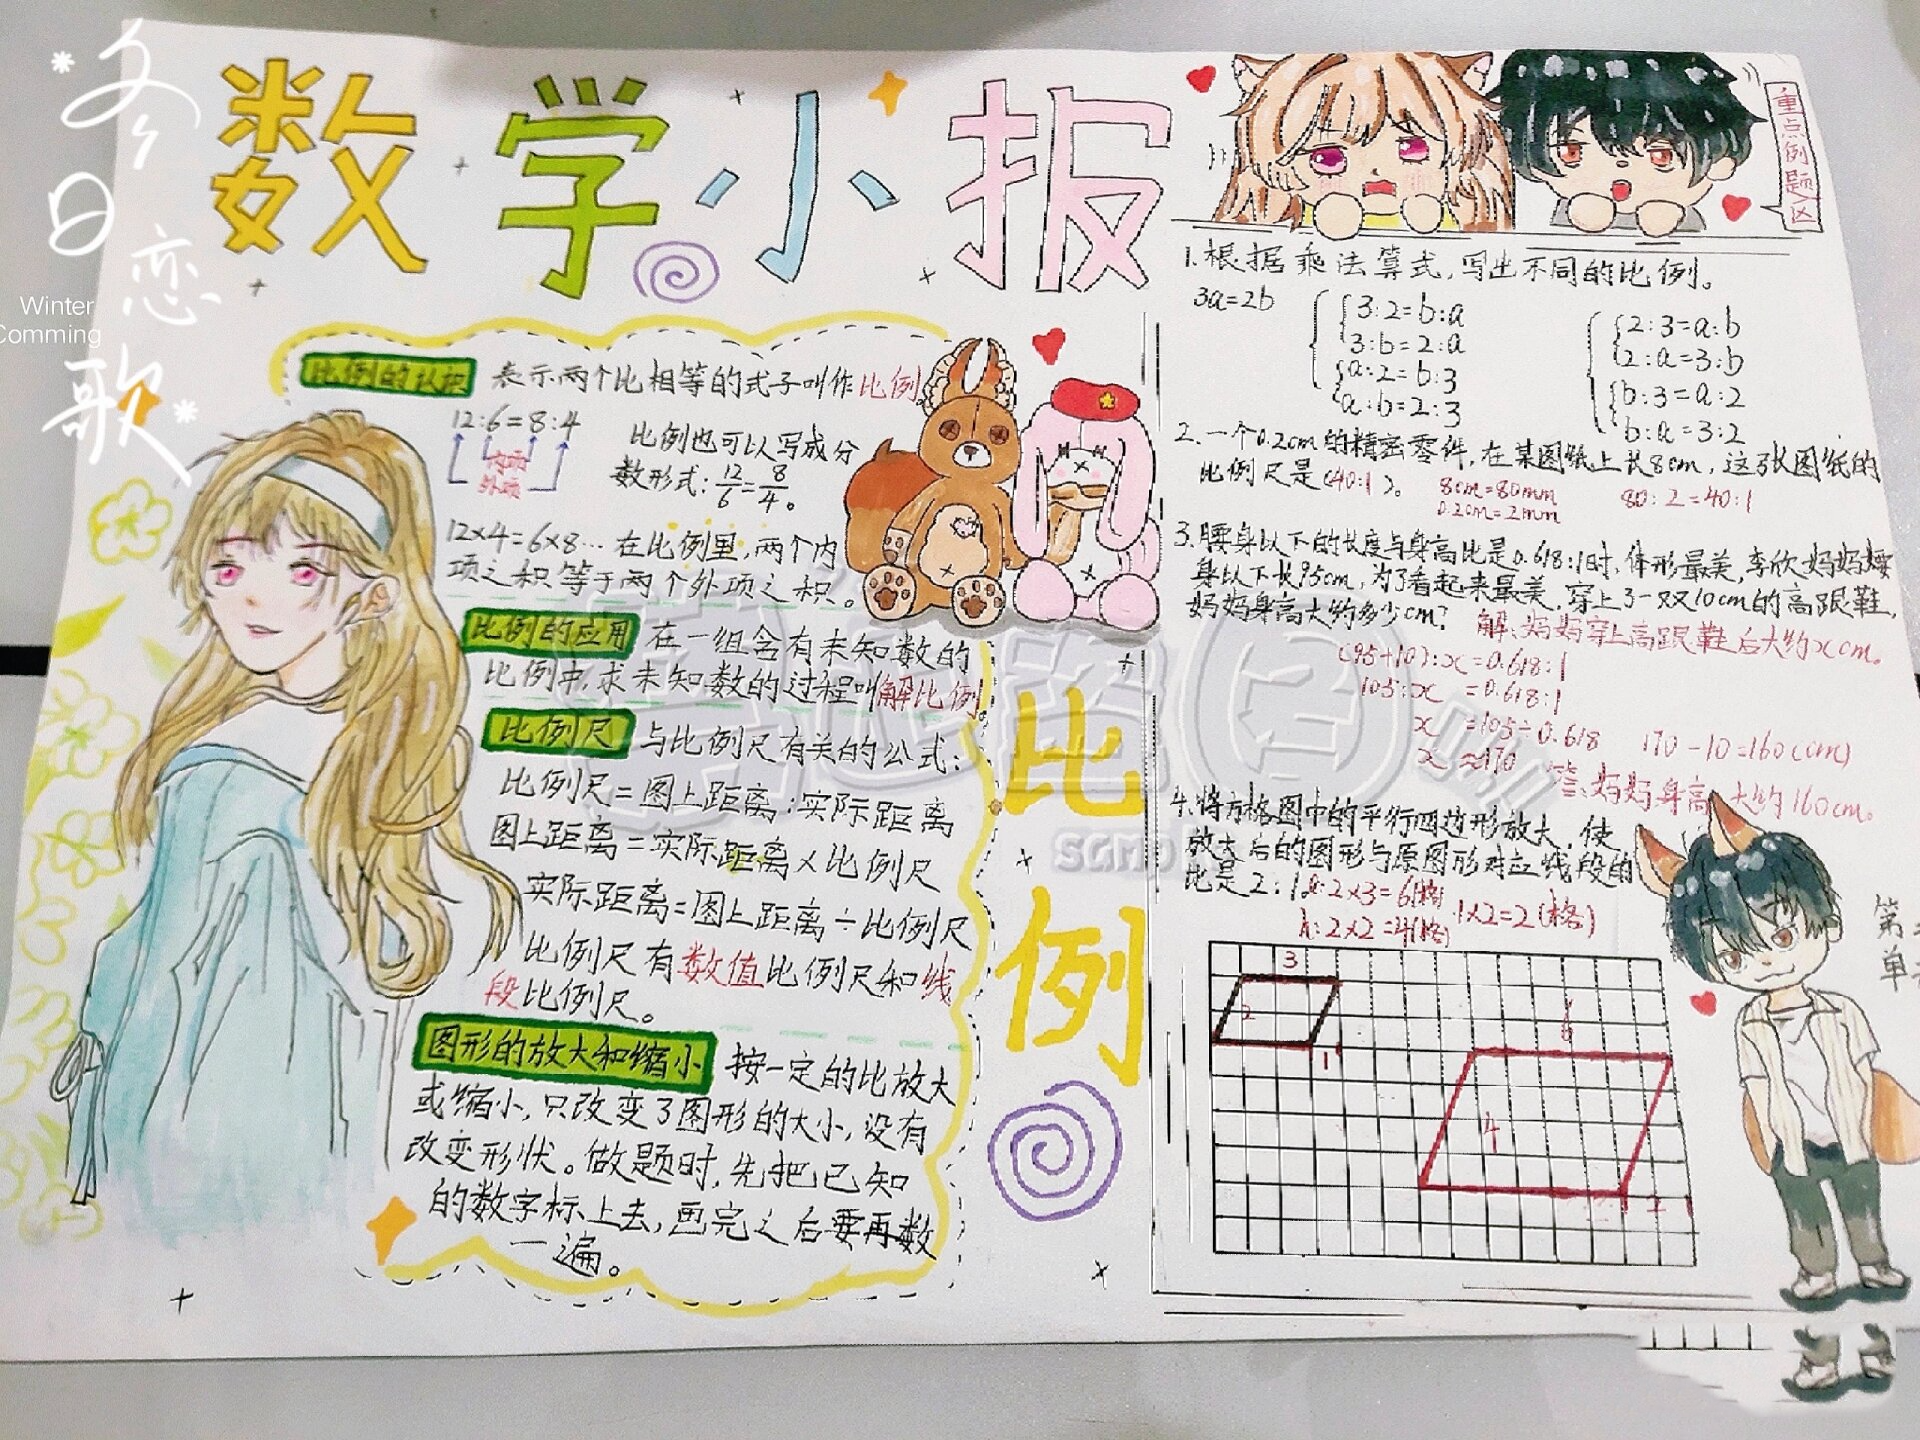 冬日恋歌
Winter
Comming
数学小报
重点例题区
比例的认识 表示两个比相等的式子叫作比例
12:6=8:4
内项
外项
比例也可以写成分
数形式:12/6=8/4。
12×4=6×8…在比例里,两个内
项之积等于两个外项之积。
比例的应用 在一组含有未知数的
比例中,求未知数的过程叫解比例
比例尺 与比例尺有关的公式:
比例尺=图上距离:实际距离
图上距离=实际距离×比例尺
实际距离=图上距离÷比例尺
比例尺有数值比例尺和线
段比例尺。
图形的放大和缩小 按一定的比放大
或缩小,只改变了图形的大小,没有
改变形状。做题时,先把已知
的数字标上去,画完之后要再数
一遍。
比例
1.根据乘法算式,写出不同的比例。
3a=2b
3:2=b:a
3:b=2:a
a:2=b:3
a:b=2:3
2:3=a:b
2:a=3:b
b:3=a:2
b:a=3:2
2.一个0.2cm的精密零件,在某图纸上长8cm,这张图纸的
比例尺是(40:1)。
8cm=80mm
0.2cm=2mm
80:2=40:1
3.腰身以下的长度与身高比是0.618:1时,体形最美,李欣妈妈腰
身以下长95cm,为了看起来最美,穿上了一双10cm的高跟鞋,
妈妈身高大约多少cm?
解:妈妈穿上高跟鞋后大约xcm。
(95+10):x=0.618:1
105:x=0.618:1
x=105÷0.618
x≈170
170-10=160(cm)
答:妈妈身高大约160cm。
4.将方格图中的平行四边形放大,使
放大后的图形与原图形对应线段的
比是2:1。a:2×3=6(格)
h:2×2=4(格) 1×2=2(格)
3
2
1
6
4
2
第二
单元